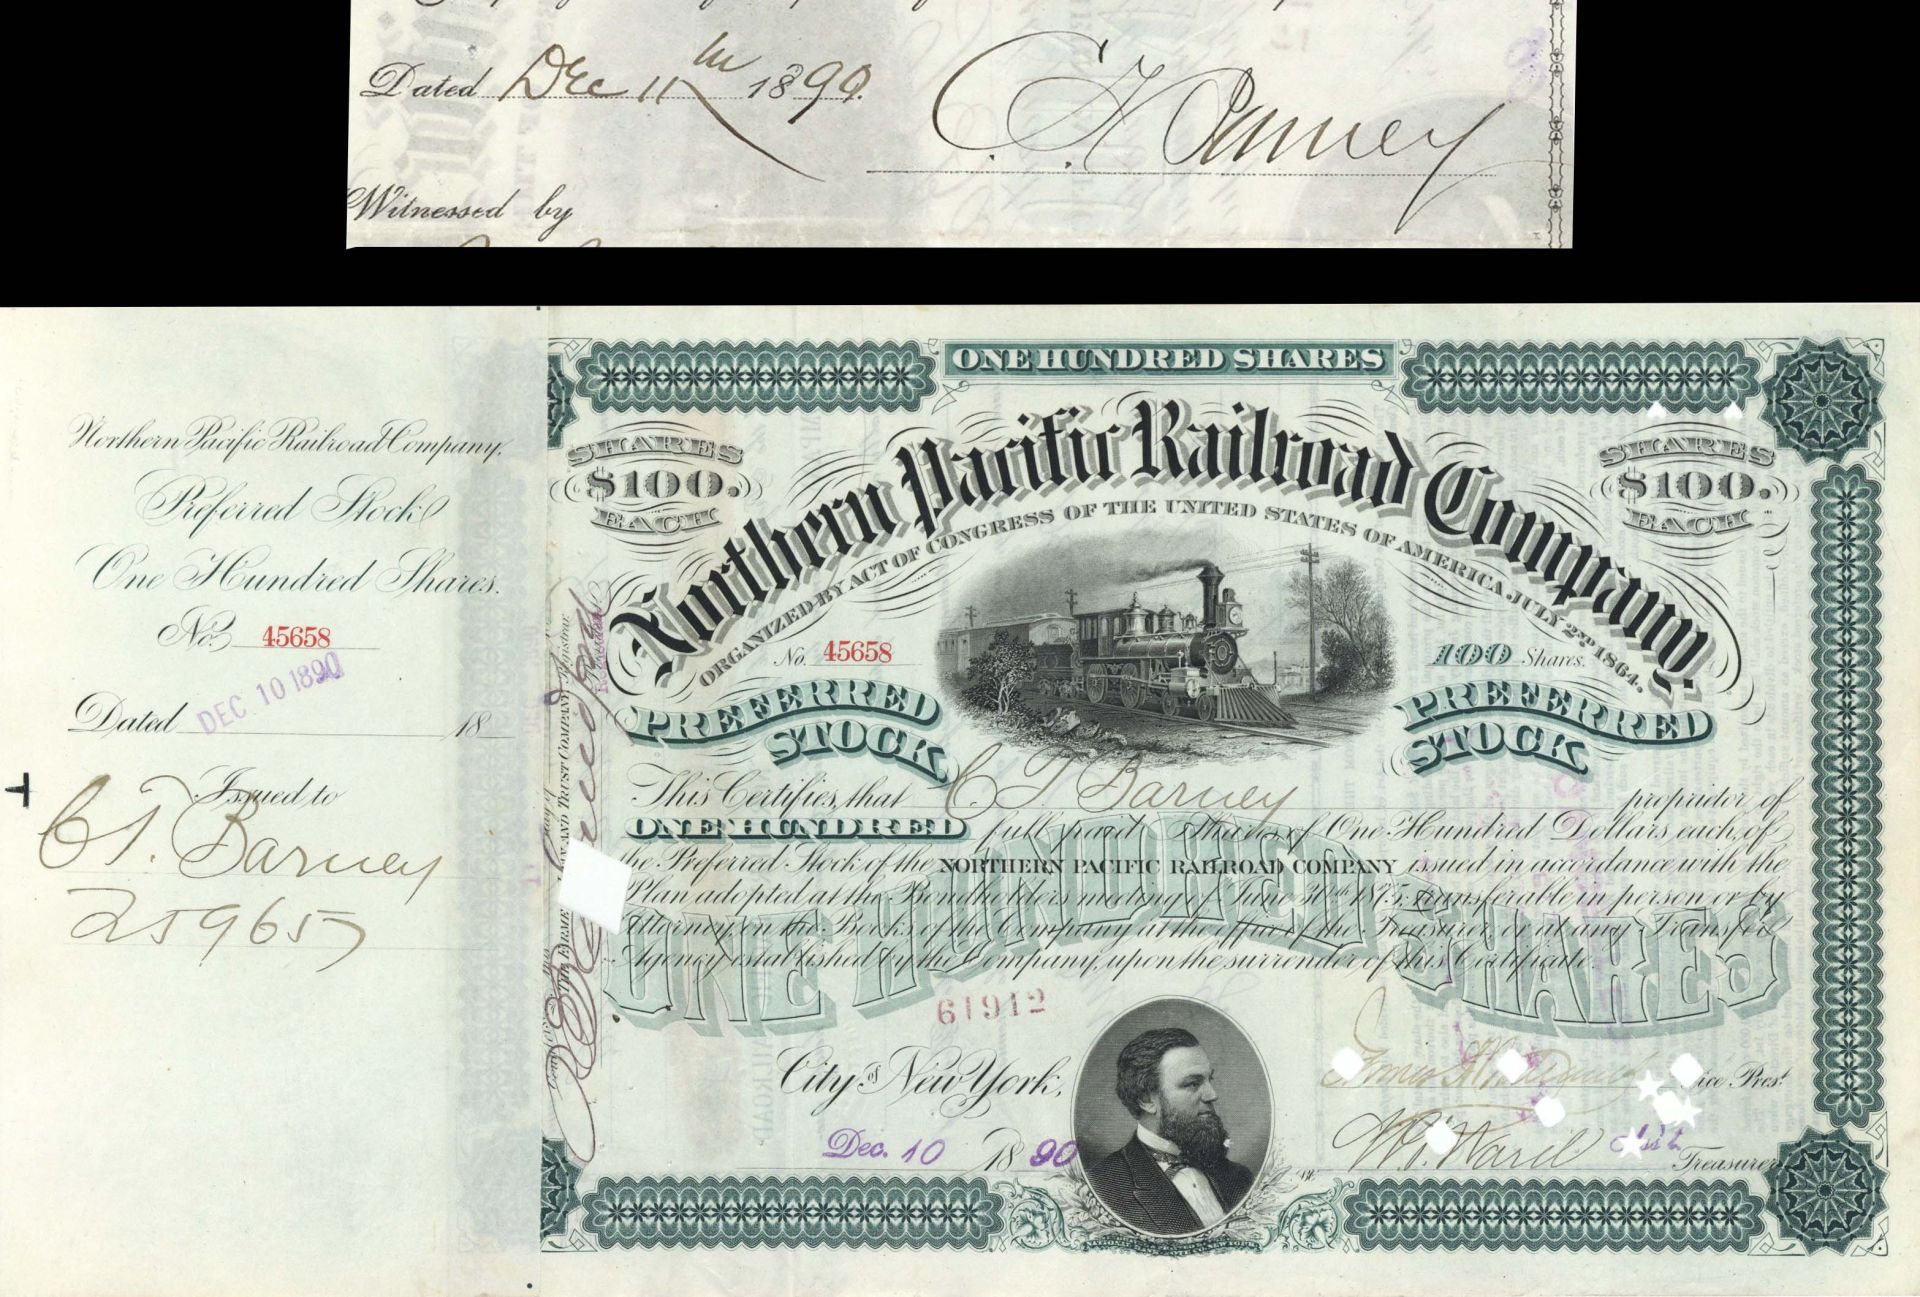 Dated Dec 11th 1890.
C. T. Barney
Witnessed by
Northern Pacific Railroad Company.
Preferred Stock
One Hundred Shares.
No. 45658
DEC 10 1890
Dated 18
Issued to
C T. Barney
259657
ONE HUNDRED SHARES
SHARES $100. EACH
SHARES $100. EACH
Northern Pacific Railroad Company.
ORGANIZED BY ACT OF CONGRESS OF THE UNITED STATES OF AMERICA JULY 2ND 1864.
No. 45658
100 Shares.
PREFERRED STOCK
PREFERRED STOCK
This Certifies, that C. T. Barney proprietor of
ONE HUNDRED full paid Shares of One Hundred Dollars each, of
the Preferred Stock of the NORTHERN PACIFIC RAILROAD COMPANY issued in accordance with the
Plan adopted at the Bondholders meeting of June 30th 1875, transferable in person or by
Attorney on the Books of the Company at the office of the Treasurer, or at any Transfer
Agency established by the Company, upon the surrender of this Certificate.
ONE HUNDRED SHARES
61912
City of New York,
Dec. 10 1890
Vice Prest
Treasurer
TRUST COMPANY, Registrar